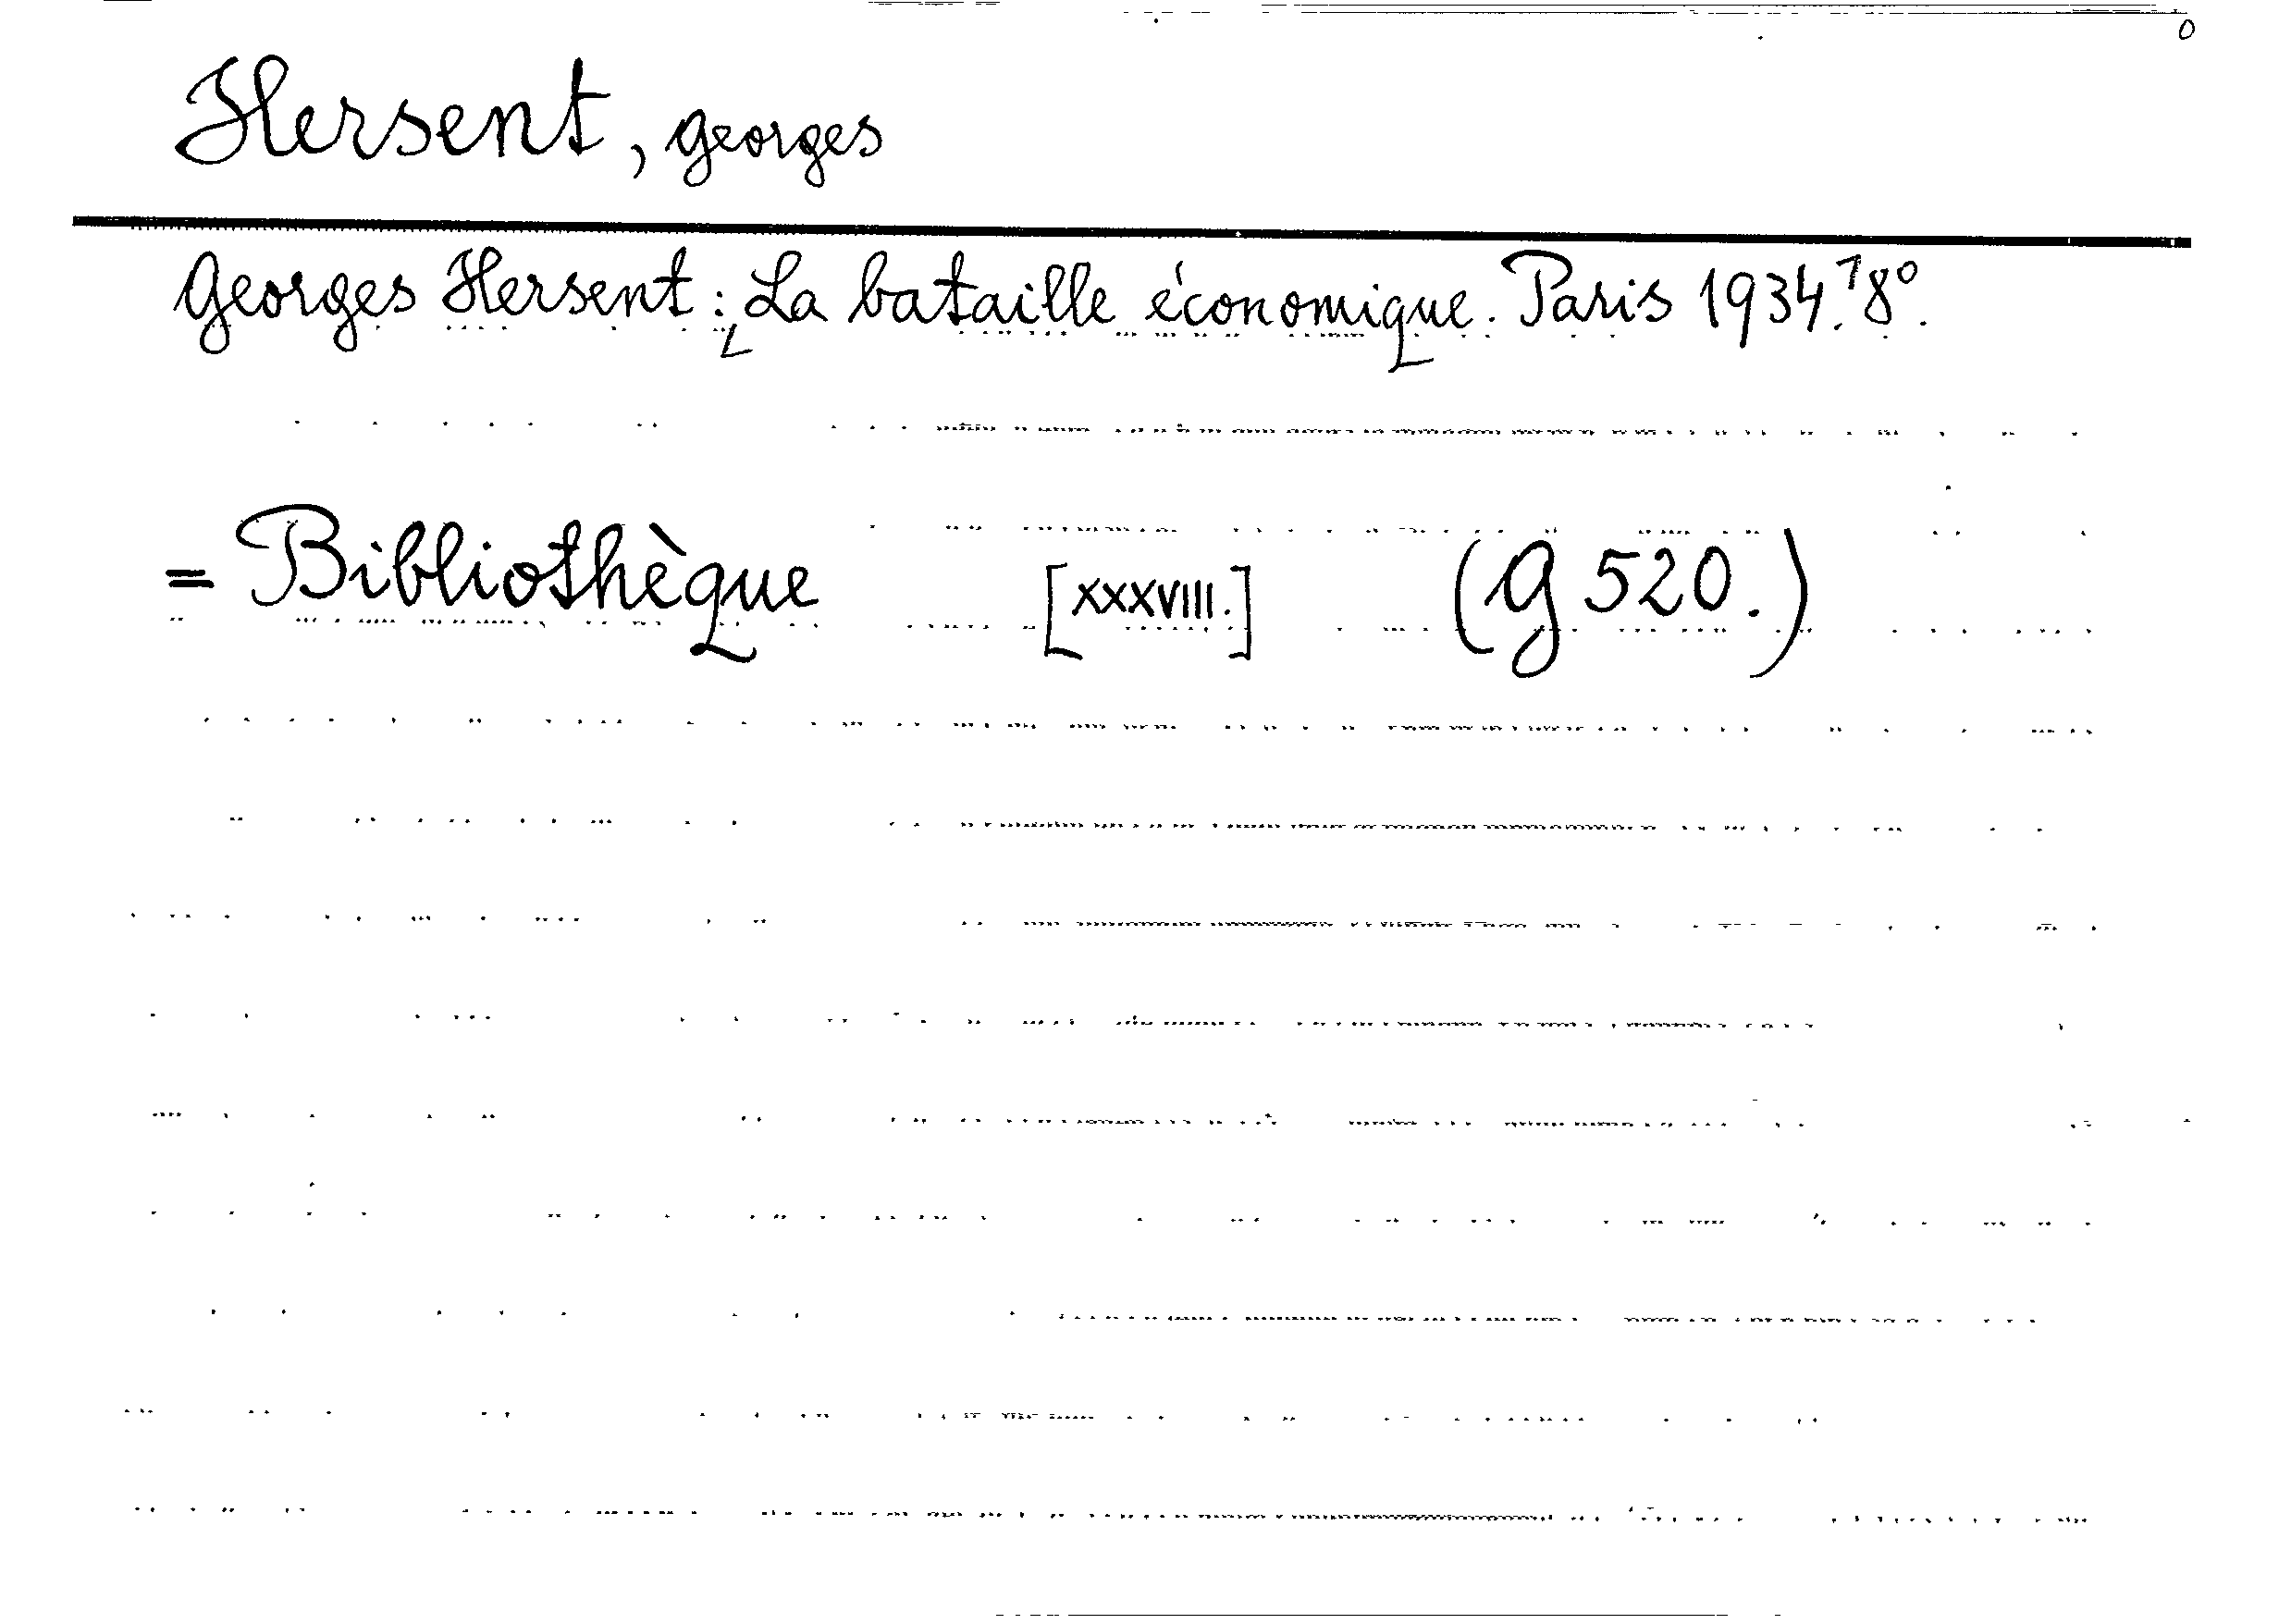 Hersent, Georges
Georges Hersent: La bataille économique. Paris 1934. 8°.
= Bibliothèque [XXXVIII.] (G 520.)